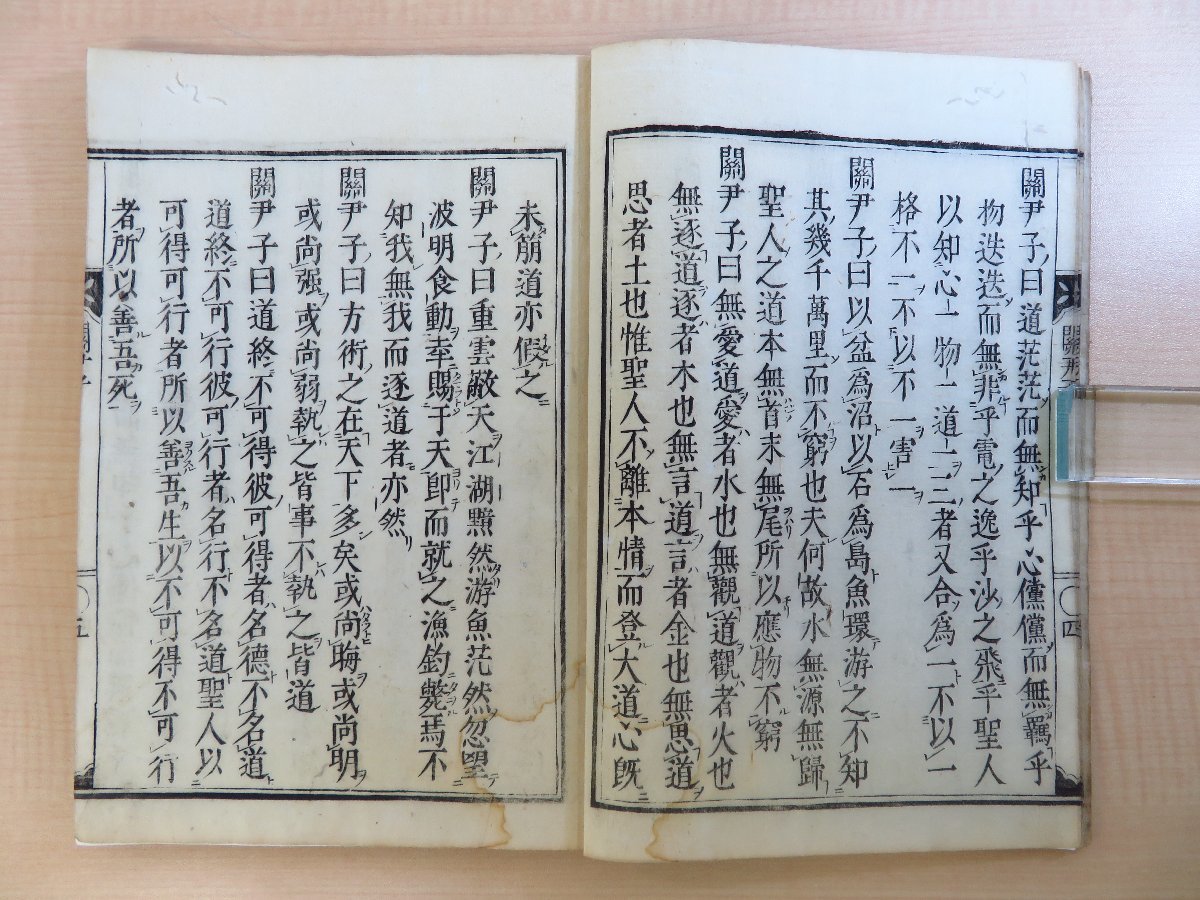 關尹子曰道茫茫而無知乎心儻儻而無羈乎
物迭迭而無非乎電之逸乎沙之飛乎聖人
以知心一物一道一三者又合爲一不以一
格不一不以不一害一
關尹子曰以盆爲沼以石爲島魚環游之不知
其幾千萬里而不窮也夫何故水無源無歸
聖人之道本無首末無尾所以應物不窮
關尹子曰無愛道愛者水也無觀道觀者火也
無逐道逐者木也無言道言者金也無思道
思者土也惟聖人不離本情而登大道心既
四
未萠道亦假之
關尹子曰重雲蔽天江湖黯然游魚茫然忽望
波明食動幸賜于天卽而就之漁釣斃焉不
知我無我而逐道者亦然
關尹子曰方術之在天下多矣或尚晦或尚明
或尚强或尚弱執之皆事不執之皆道
關尹子曰道終不可得彼可得者名德不名道
道終不可行彼可行者名行不名道聖人以
可得可行者所以善吾生以不可得不可行
者所以善吾死
五